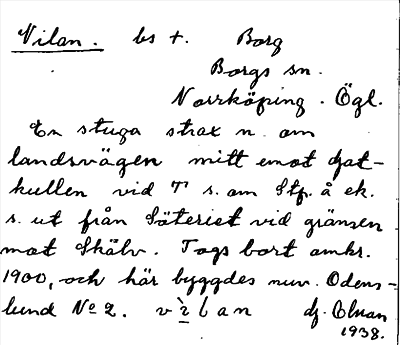 Vilan. bs t. Borg
Borgs sn.
Norrköping. Ögl.
En stuga strax n. om
landsvägen mitt emot Gat-
kullen vid T s. om Stf. å ek.
s. ut från Säteriet vid gränsen
mot Skälv. Togs bort omkr.
1900, och här byggdes nuv. Odens-
lund No 2. v ì l a n
1938.